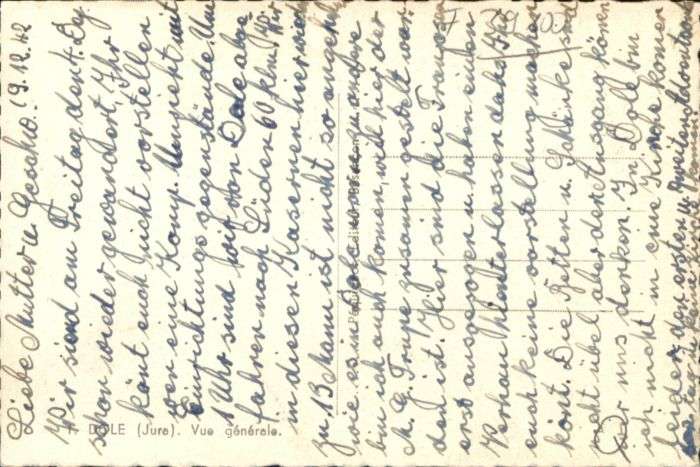 Liebe Mutter u. Geschw. 19.12.42
Wir sind am Freitag den 11. Dez.
schon wieder gewandert, Ihr
könt euch nicht vorstellen
wer eine Komp. Umzieht mit
Einrichtungs gegenstände. Um
1 Uhr sind wir von Dole abge
fahren nach Süden 60 klm. Wir
in dieser Kasernen hier wieder
zu 13 Mann ist nicht so angenehm
wie es in Dole war, zu andere
bin ich auch komen, weil hier der
M. G. Trupe zusamen gestelt wor
den ist. Hier sind die Franzosen
erst ausgezogen u. haben einen
Verhau hinterlassen da könt Ihr
euch keine vorstellung machen
könt. Die Betten u. Schänke sind
nicht übel aber der Ausgang könen
wir uns denken. In Dole bin
ich nicht in eine Kirche komen
leider, den ersten u. zweiten Advent
7 39203
1. DOLE (Jura). Vue générale.